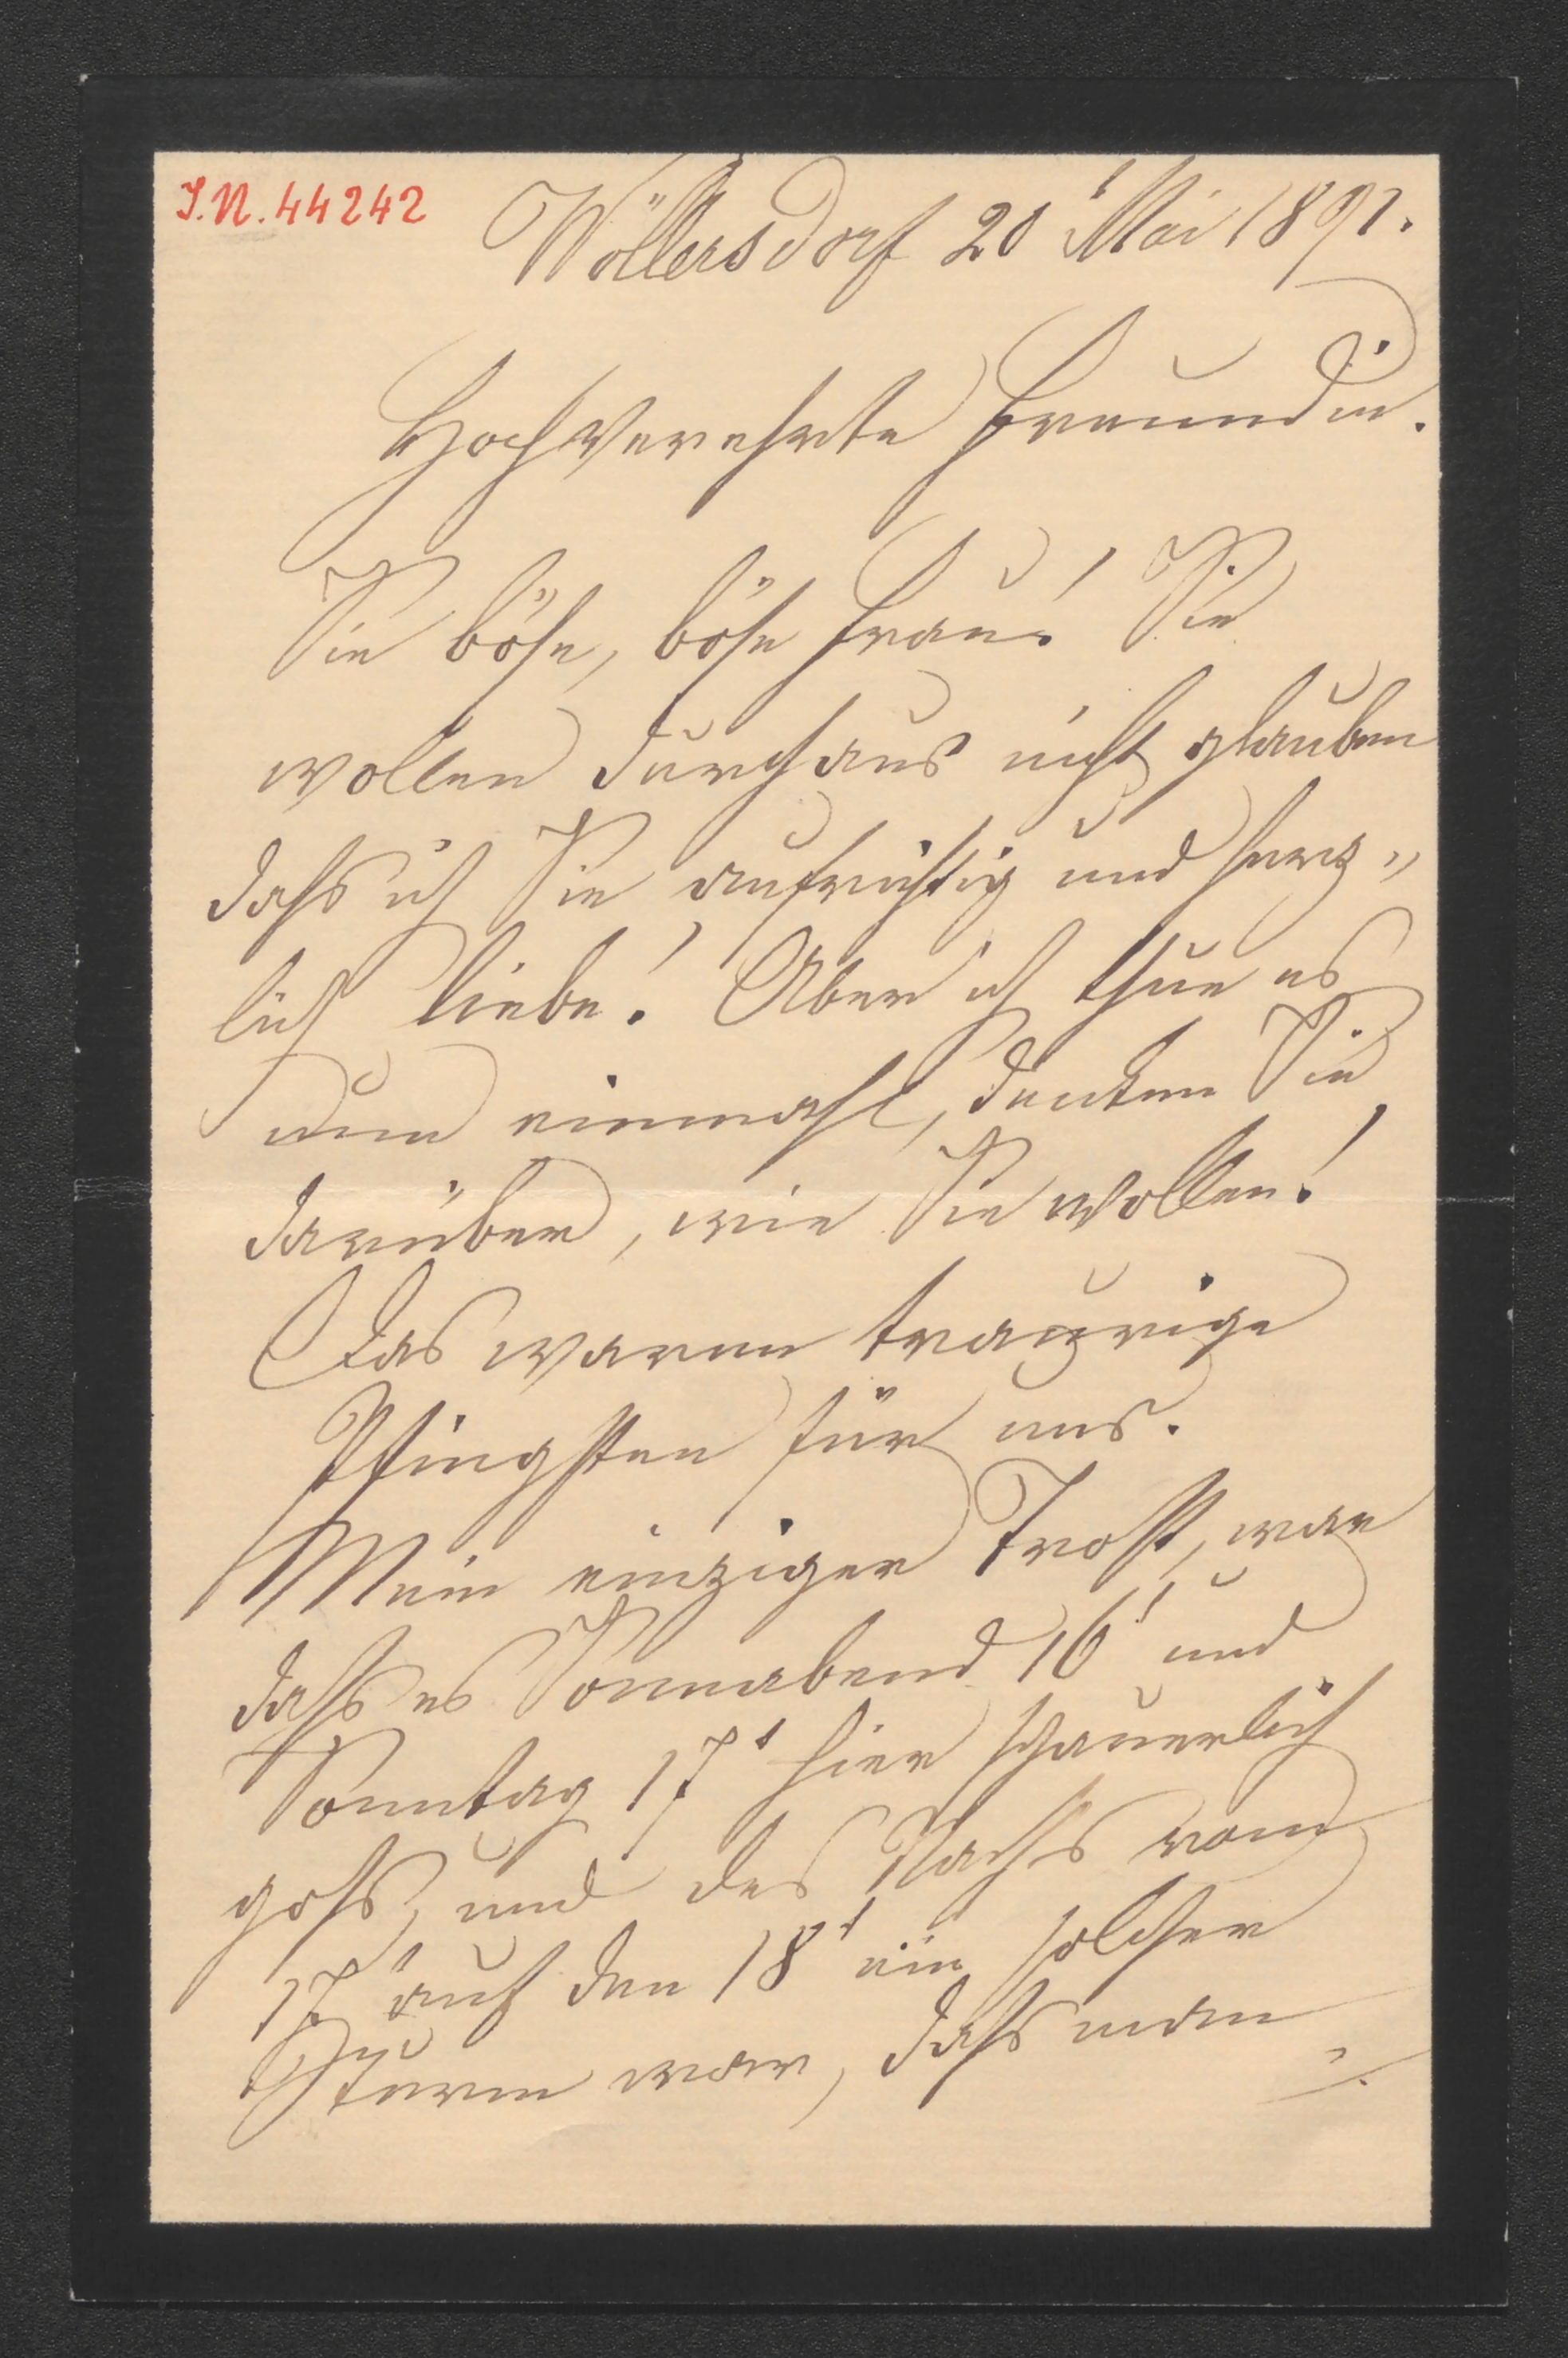 I.N. 44242
Wöllersdorf 20' Mai 1891.
Hochverehrte Freundin.
Sie böse, böse Frau! Sie
wollen durchaus nicht glauben
dafs ich Sie aufrichtig und herz„
lich liebe! Aber ich thue es
nun einmahl, denken Sie
darüber, wie Sie wollen!
Das waren traurige
Pfingsten für uns.
Mein einziger Trost, war
dafs es Sonnabend 16' und
Sonntag 17' hier schauerlich
gofs, und des Nachts vom
17' auf den 18' ein solcher
Sturm war, dafs man